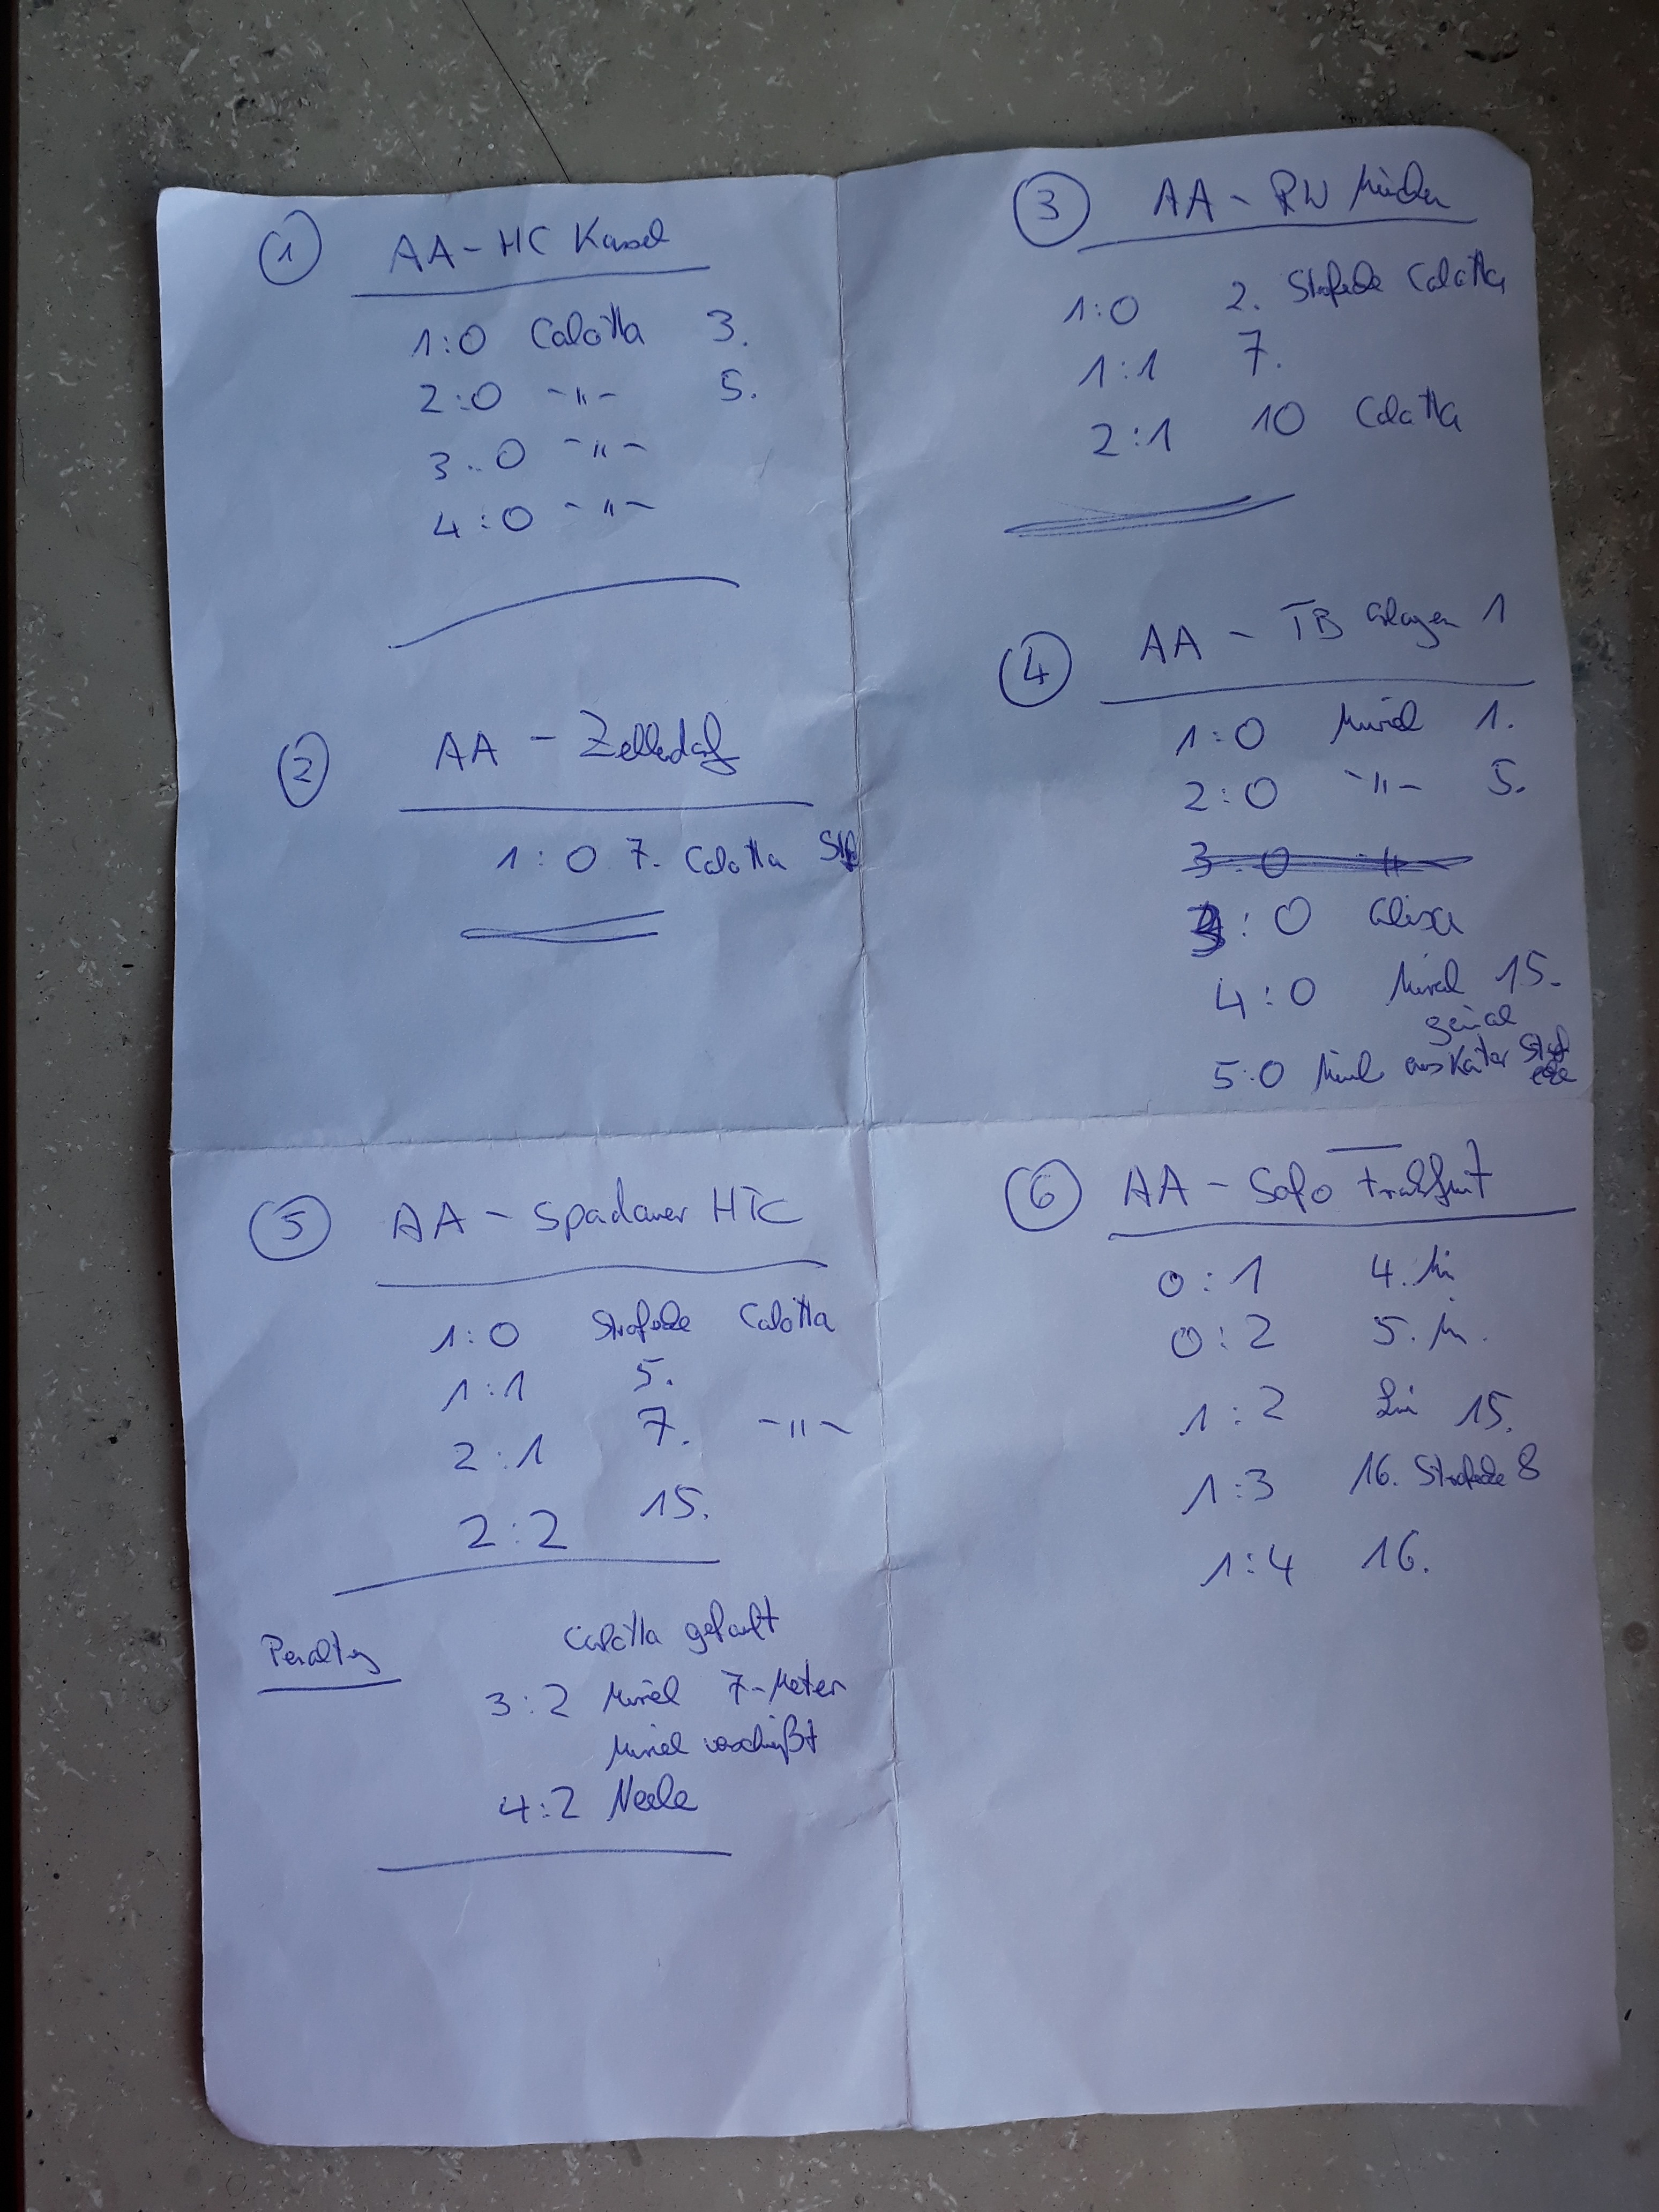 1 AA - HC Kassel
1:0 Calotta 3.
2:0 -"- 5.
3:0 -"-
4:0 -"-
2 AA - Zehlendorf
1:0 7. Calotta
3 AA - RW München
1:0 2. Strafecke Calotta
1:1 7.
2:1 10 Calotta
4 AA - TB 1
1:0 Muriel 1.
2:0 -"- 5.
3:0 "
3:0
4:0 Muriel 15.
genial
5:0 Muriel aus Konter Strafecke
5 AA - Spandauer HTC
1:0 Strafecke Calotta
1:1 5.
2:1 7. -"-
2:2 15.
Penalty
Calotta gefault
3:2 Muriel 7-Meter
Muriel verschießt
4:2 Neele
6 AA - Safo Frankfurt
0:1 4. Min
0:2 5. Min.
1:2 15.
1:3 16. Strafecke 8
1:4 16.